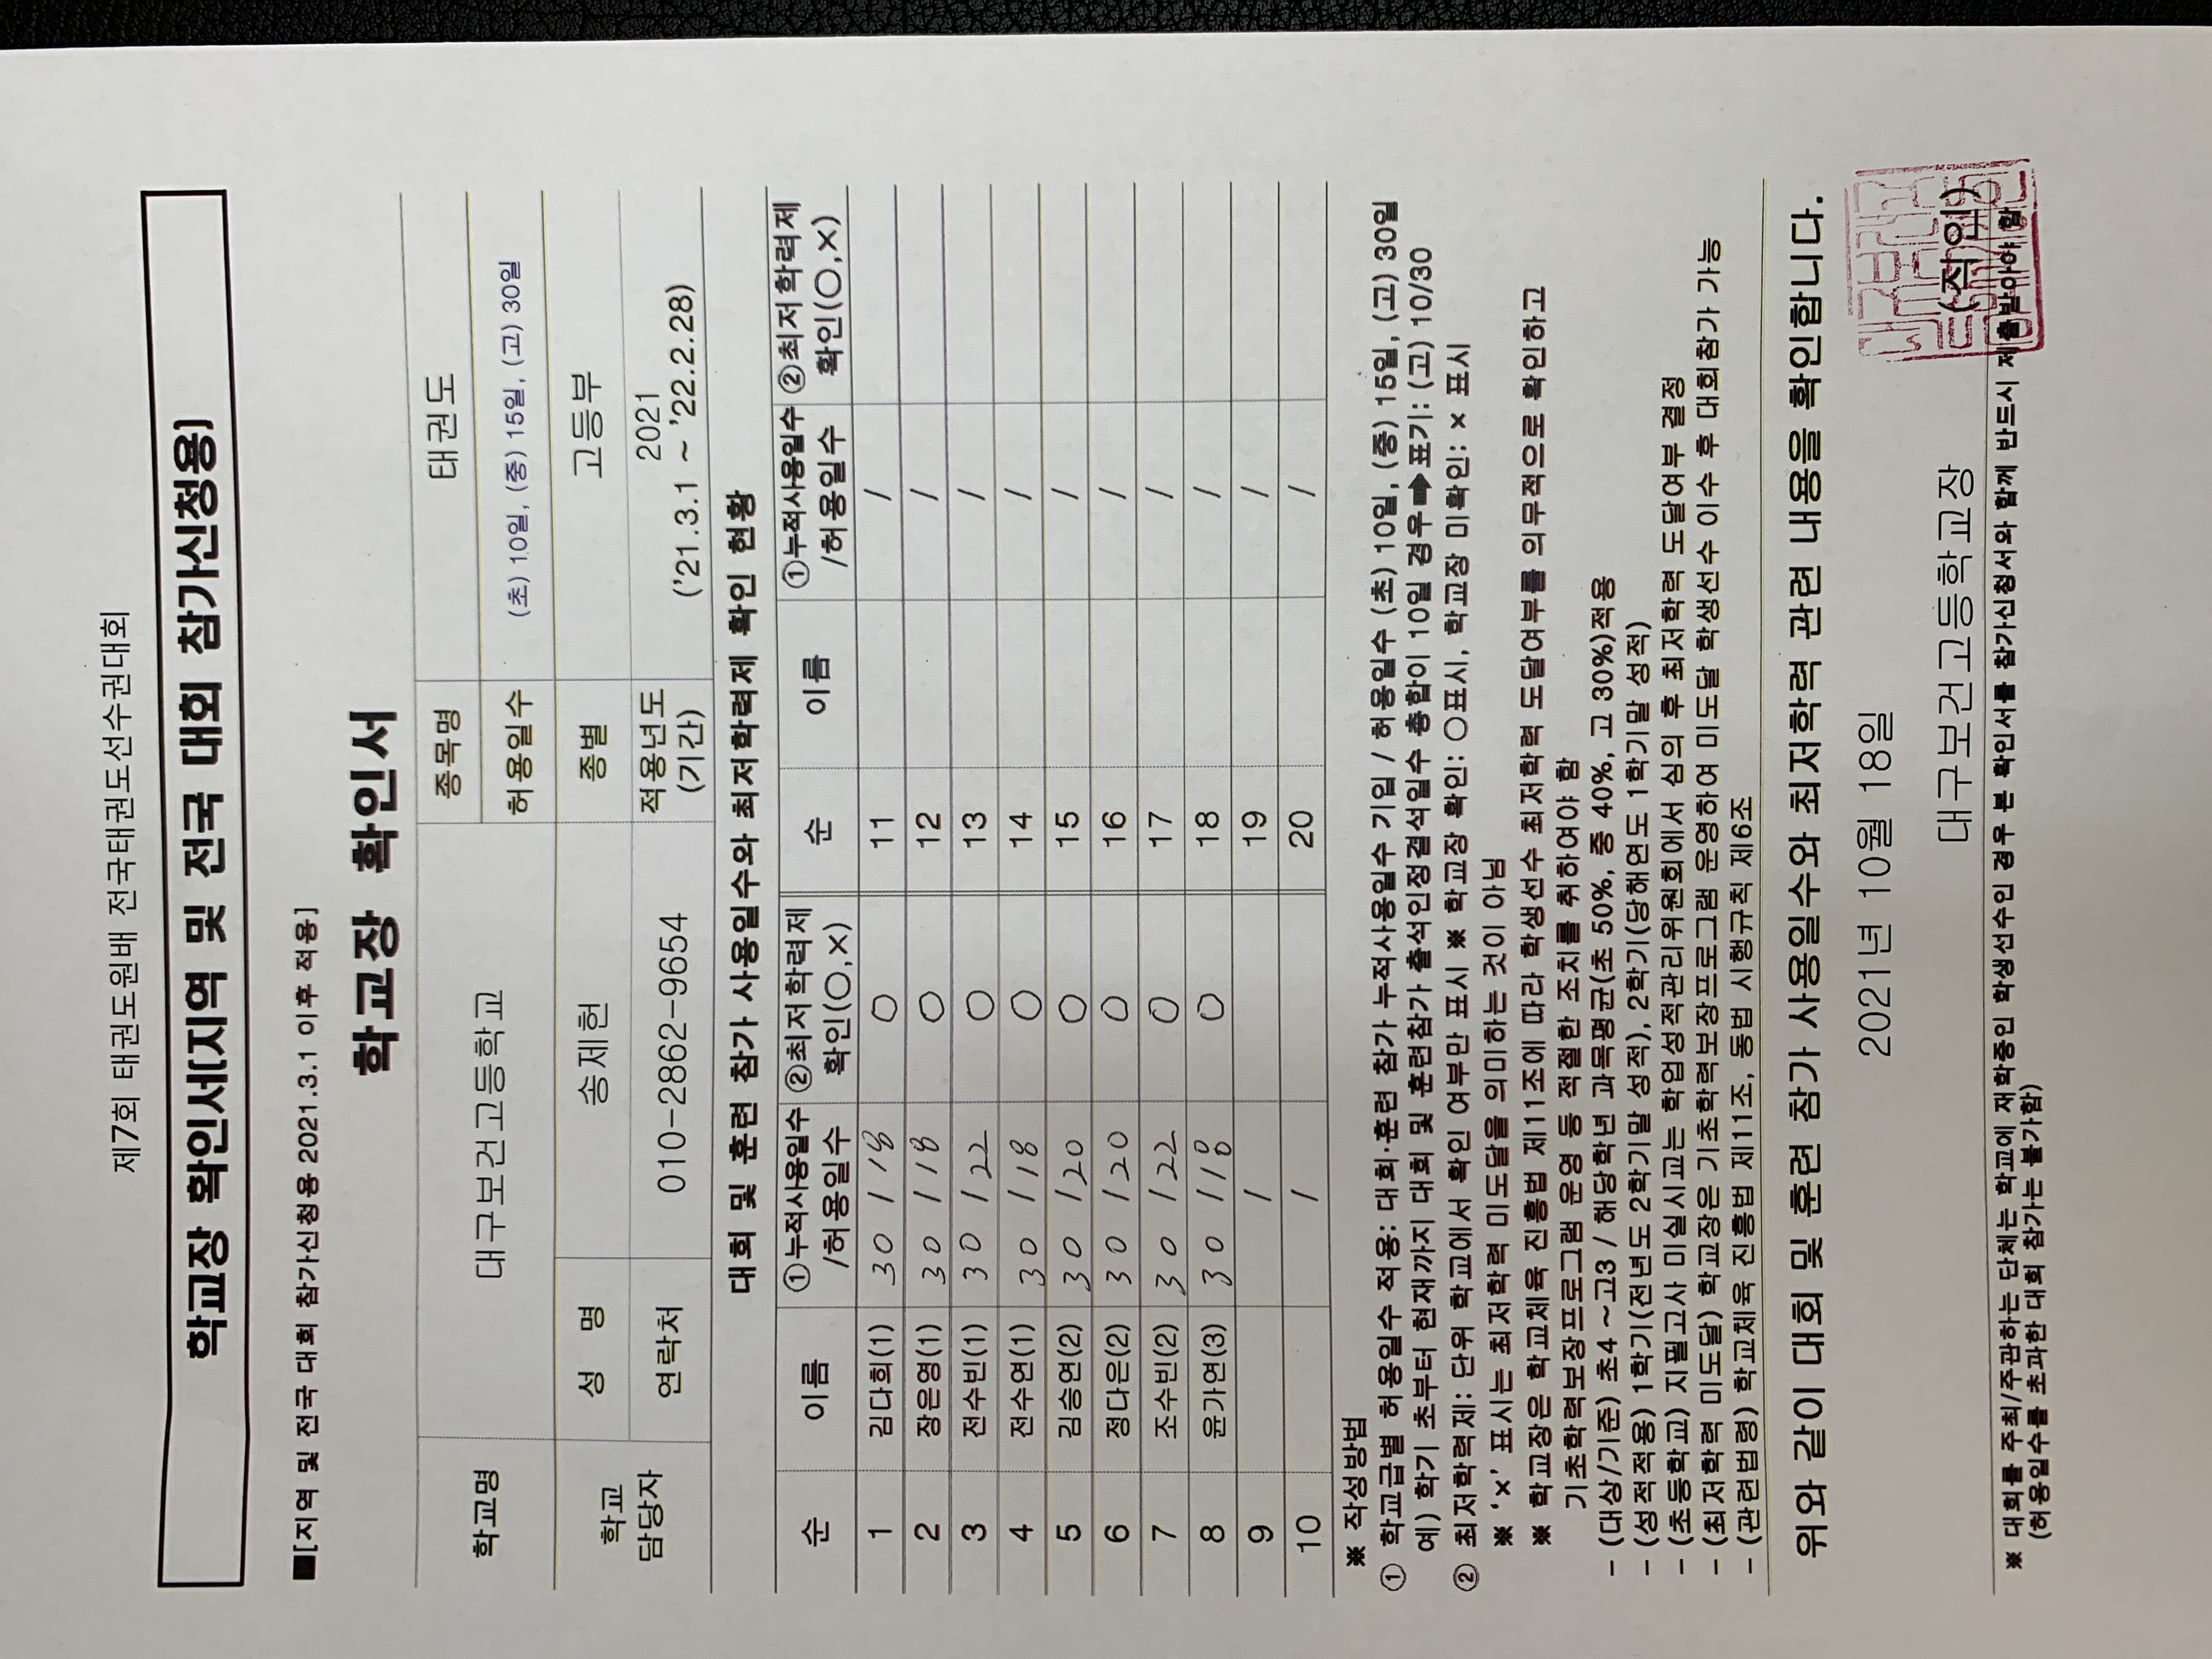 제7회 태권도원배 전국태권도선수권대회
학교장 확인서(지역 및 전국 대회 참가신청용)
■[지역 및 전국 대회 참가신청용 2021.3.1 이후 적용]
학교장 확인서
학교명 대구보건고등학교 종목명 태권도
허용일수 (초) 10일, (중) 15일, (고) 30일
학교 담당자 성 명 송제헌 종별 고등부
연락처 010-2862-9654 적용년도 (기간) 2021 ('21.3.1 ~ '22.2.28)
대회 및 훈련 참가 사용일수와 최저학력제 확인 현황
순 이름 ①누적사용일수 /허용일수 ②최저학력제 확인(○,×) 순 이름 ①누적사용일수 /허용일수 ②최저학력제 확인(○,×)
1 김다희(1) 30 / 18 ○ 11 /
2 장은영(1) 30 / 18 ○ 12 /
3 전수빈(1) 30 / 22 ○ 13 /
4 전수연(1) 30 / 18 ○ 14 /
5 김승연(2) 30 / 20 ○ 15 /
6 정다은(2) 30 / 20 ○ 16 /
7 조수빈(2) 30 / 22 ○ 17 /
8 윤가연(3) 30 / 18 ○ 18 /
9 / 19 /
10 / 20 /
※ 작성방법
① 학교급별 허용일수 적용: 대회·훈련 참가 누적사용일수 기입 / 허용일수 (초) 10일, (중) 15일, (고) 30일
예) 학기 초부터 현재까지 대회 및 훈련참가 출석인정결석일수 총합이 10일 경우➡표기: (고) 10/30
② 최저학력제: 단위 학교에서 확인 여부만 표시 ※ 학교장 확인: ○표시, 학교장 미확인: × 표시
※ '×' 표시는 최저학력 미도달을 의미하는 것이 아님
※ 학교장은 학교체육 진흥법 제11조에 따라 학생선수 최저학력 도달여부를 의무적으로 확인하고
기초학력보장프로그램 운영 등 적절한 조치를 취하여야 함
- (대상/기준) 초4 ~ 고3 / 해당학년 과목평균(초 50%, 중 40%, 고 30%)적용
- (성적적용) 1학기(전년도 2학기말 성적), 2학기(당해연도 1학기말 성적)
- (초등학교) 지필고사 미실시교는 학업성적관리위원회에서 심의 후 최저학력 도달여부 결정
- (최저학력 미도달) 학교장은 기초학력보장프로그램 운영하여 미도달 학생선수 이수 후 대회참가 가능
- (관련법령) 학교체육 진흥법 제11조, 동법 시행규칙 제6조
위와 같이 대회 및 훈련 참가 사용일수와 최저학력 관련 내용을 확인합니다.
2021년 10월 18일
대구보건고등학교장 (직인)
※ 대회를 주최/주관하는 단체는 학교에 재학중인 학생선수인 경우 본 확인서를 참가신청서와 함께 반드시 제출받아야 함
(허용일수를 초과한 대회 참가는 불가함)